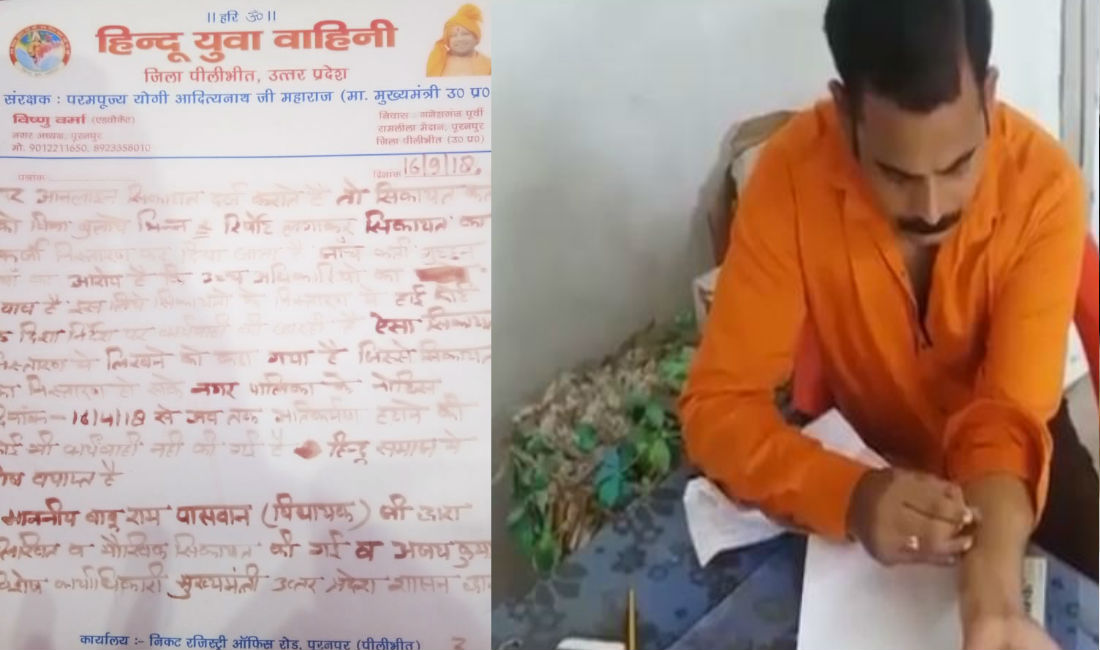 || हरि ॐ ||
हिन्दू युवा वाहिनी
जिला पीलीभीत, उत्तर प्रदेश
संरक्षक : परमपूज्य योगी आदित्यनाथ जी महाराज (मा. मुख्यमंत्री उ० प्र०
विष्णु वर्मा (एडवोकेट)
नगर अध्यक्ष, पूरनपुर
मो. 9012211650, 8923358010
निवास : गनेशगंज पूर्वी
रामलीला मैदान, पूरनपुर
जिला पीलीभीत (उ० प्र०)
पत्रांक
दिनांक 16/9/18
आनलाइन सिकायत दर्ज कराते है तो सिकायत
को बिना बुलाये भिन्न रिपोर्ट लगाकर सिकायत का
फर्जी निस्तारण कर दिया जाता है जांच कर्ता
का आरोप है कि उच्च अधिकारियो का
दबाव है इस लिये सिकायतो के निस्तारण मे हाई कोर्ट
के दिशा निर्देश पर कार्यवाही की जा रही है ऐसा
निस्तारण मे लिखने को कहा गया है जिससे सिकायत
का निस्तारण हो सके नगर पालिका के नोटिस
दिनांक - 16/4/18 से अब तक अतिक्रमण हटाने की
कोई भी कार्यवाही नही की गई है हिन्दू समाज मे
रोष व्याप्त है
माननीय बाबू राम पासवान (विधायक) जी द्वारा
लिखित व मौखिक सिकायत की गई व अजय
विशेष कार्याधिकारी मुख्यमंत्री उत्तर प्रदेश शासन
कार्यालय :- निकट रजिस्ट्री ऑफिस रोड, पूरनपुर (पीलीभीत)